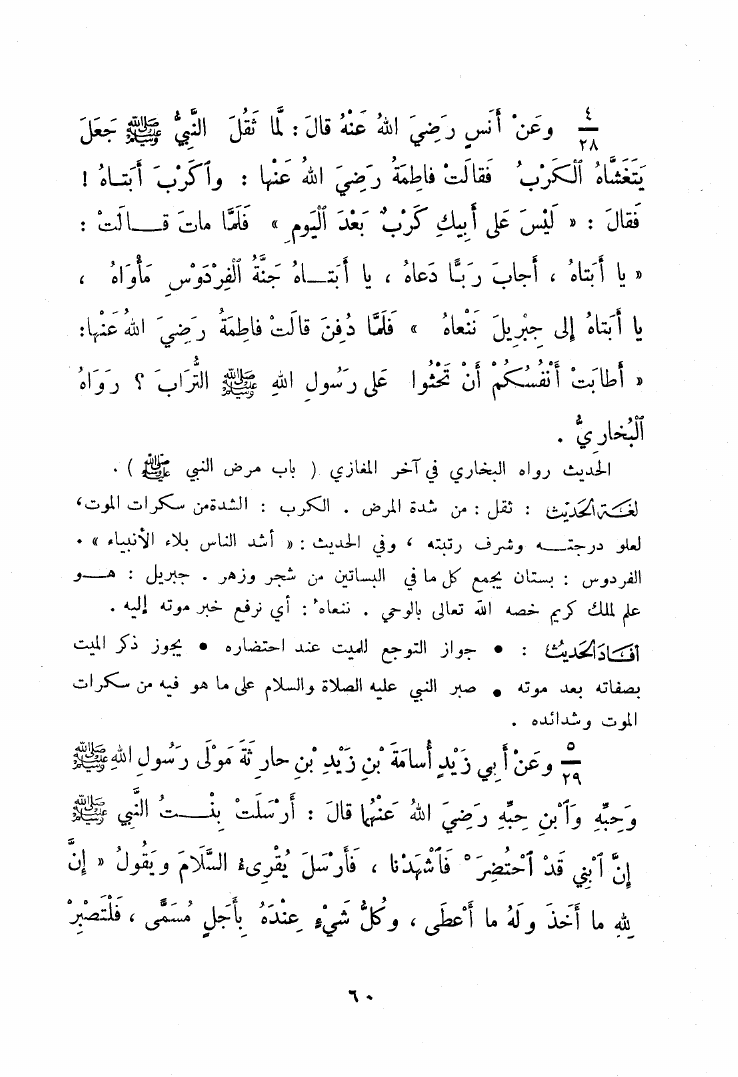 ٤
٢٨ وعَنْ أَنَسٍ رَضِيَ اللهُ عَنْهُ قالَ : لَمَّا ثَقُلَ النَّبِيُّ ﷺ جَعَلَ
يَتَغَشَّاهُ ٱلْكَرْبُ فَقالَتْ فاطِمَةُ رَضِيَ اللهُ عَنْها : واكَرْبَ أَبَتـاهُ !
فَقالَ : « لَيْسَ عَلى أَبيكِ كَرْبٌ بَعْدَ ٱلْيَومِ » فَلَمَّا ماتَ قـالَتْ :
« يا أَبَتاهُ ، أَجابَ رَبًّا دَعاهُ ، يا أَبَتـاهُ جَنَّةُ ٱلْفِرْدَوْسِ مَأْوَاهُ ،
يا أَبَتاهُ إِلى جِبْرِيلَ نَنْعاهُ » فَلَمَّا دُفِنَ قالَتْ فاطِمَةُ رَضِيَ اللهُ عَنْها:
« أَطابَتْ أَنْفُسُكُمْ أَنْ تَحْثُوا عَلى رَسُولِ اللهِ ﷺ التُّرابَ ؟ رَوَاهُ
ٱلْبُخارِيُّ .
الحديث رواه البخاري في آخر المغازي ( باب مرض النبي ﷺ ) .
لغة الحديث : ثقل : من شدة المرض . الكرب : الشدة من سكرات الموت،
لعلو درجتـه وشرف رتبته ، وفي الحديث : « أشد الناس بلاء الأنبياء » .
الفردوس : بستان يجمع كل ما في البساتين من شجر وزهر . جبريل : هـو
علم لملك كريم خصه الله تعالى بالوحي . ننعاه ُ : أي نرفع خبر موته إليه .
أفاد الحديث : • جواز التوجع للميت عند احتضاره • يجوز ذكر الميت
بصفاته بعد موته • صبر النبي عليه الصلاة والسلام على ما هو فيه من سكرات
الموت وشدائده .
٥
٢٩ وعَنْ أَبي زَيْدٍ أُسامَةَ بْنِ زَيْدِ بْنِ حارِثَةَ مَوْلَى رَسُولِ اللهِ ﷺ
وَحِبِّهِ وَٱبْنِ حِبِّهِ رَضِيَ اللهُ عَنْهُما قالَ : أَرْسَلَتْ بِنْـتُ النَّبِي ﷺ
إِنَّ ٱبْنِي قَدْ ٱحْتُضِرَ فَٱشْهَدْنا ، فَأَرْسَلَ يُقْرِىءُ السَّلامَ ويَقُولُ « إِنَّ
لِلهِ ما أَخَذَ ولَهُ ما أَعْطَى ، وكُلُّ شَيْءٍ عِنْدَهُ بِأَجَلٍ مُسَمًّى ، فَلْتَصْبِرْ
٦٠